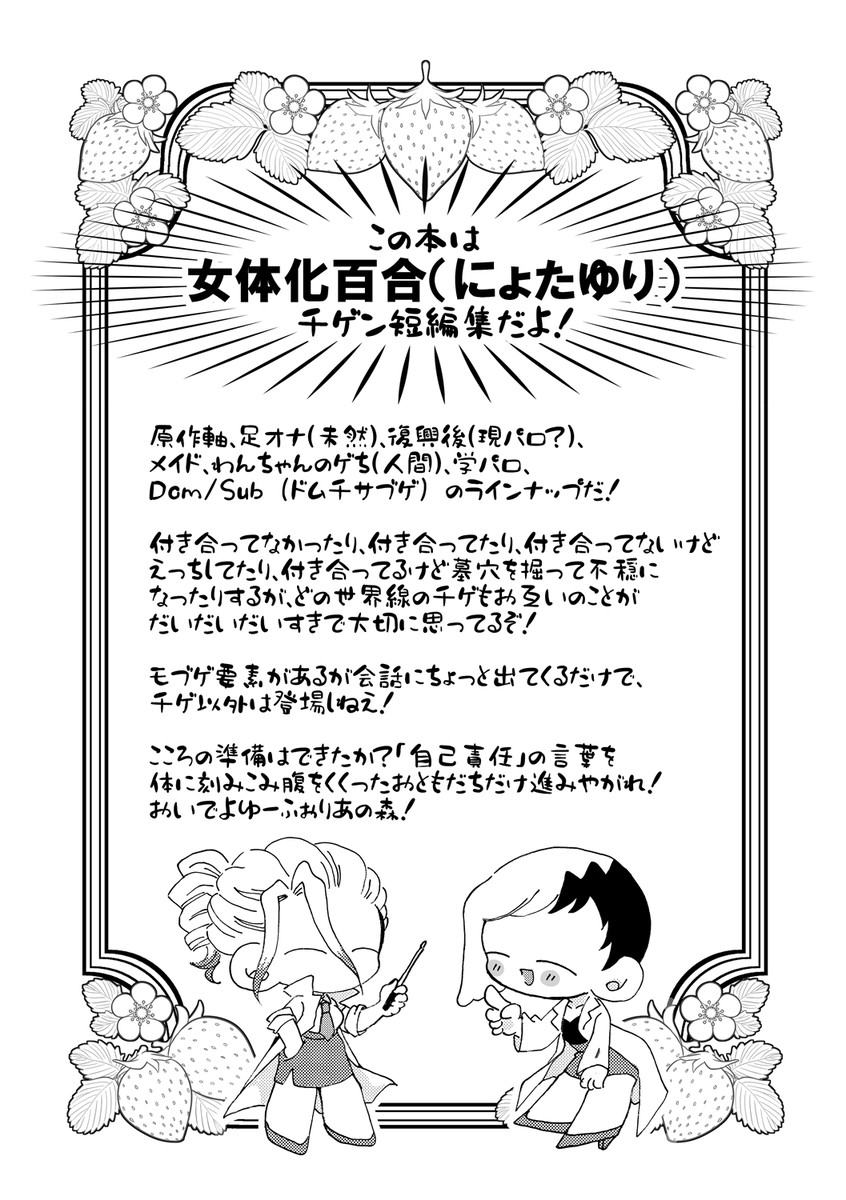 この本は
女体化百合(にょたゆり)
チゲン短編集だよ!
原作軸、足オナ(未然)、復興後(現パロ?)、
メイド、わんちゃんのゲち(人間)、学パロ、
Dom/Sub (ドムチサブゲ) のラインナップだ!
付き合ってなかったり、付き合ってたり、付き合ってないけど
えっちしてたり、付き合ってるけど墓穴を掘って不穏に
なったりするが、どの世界線のチゲもお互いのことが
だいだいだいすきで大切に思ってるぞ!
モブゲ要素があるが会話にちょっと出てくるだけで、
チゲ以外は登場しねえ!
こころの準備はできたか?「自己責任」の言葉を
体に刻みこみ腹をくくったおともだちだけ進みやがれ!
おいでよゆーふぉりあの森!